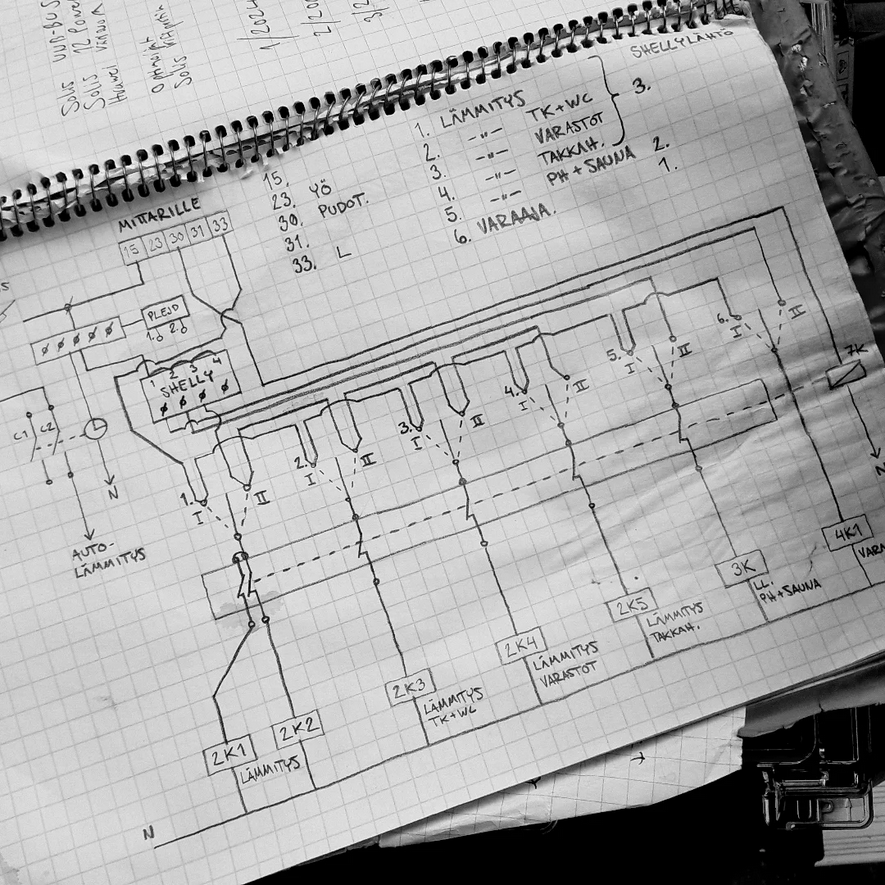 SOLIS
SOLIS
HUAWEI
SOLIS
1/2024
SHELLYLÄHTÖ
1. LÄMMITYS
2. -"- TK+WC
3. -"- VARASTOT
4. -"- TAKKAH.
5. -"- PH+SAUNA
6. VARAAJA.
3.
2.
1.
15.
23. YÖ
30. PUDOT.
31.
33. L
MITTARILLE
15 23 30 31 33
PLEJD
1. 2.
1 2 3 4
SHELLY
C1 C2
N
AUTO-
LÄMMITYS
1. I II
2. I II
3. I II
4. I II
5. I II
6. I II
7K
N
4K1
3K
LL.
PH+SAUNA
2K5
LÄMMITYS
TAKKAH.
2K4
LÄMMITYS
VARASTOT
2K3
LÄMMITYS
TK+WC
2K1
2K2
LÄMMITYS
N